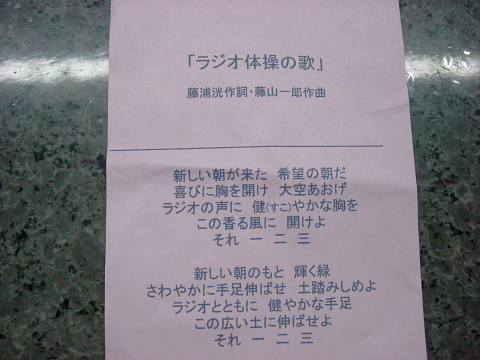 「ラジオ体操の歌」
藤浦洸作詞・藤山一郎作曲
新しい朝が来た 希望の朝だ
喜びに胸を開け 大空あおげ
ラジオの声に 健(すこ)やかな胸を
この香る風に 開けよ
それ 一 二 三
新しい朝のもと 輝く緑
さわやかに手足伸ばせ 土踏みしめよ
ラジオとともに 健やかな手足
この広い土に伸ばせよ
それ 一 二 三